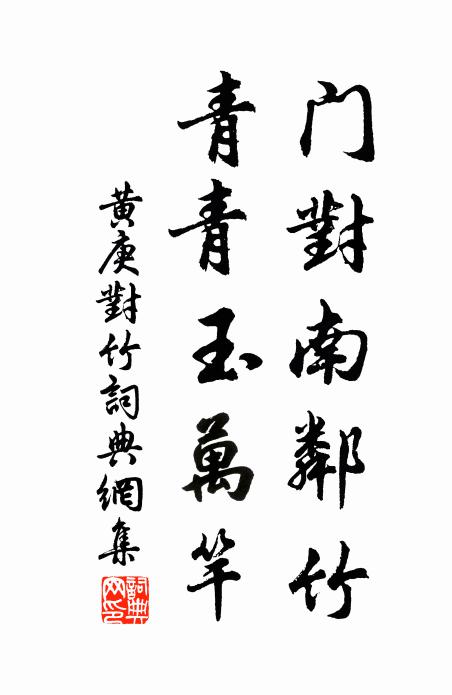 門對南鄰竹
青青玉萬竿
黃庚對竹詞典網集
詞典网印